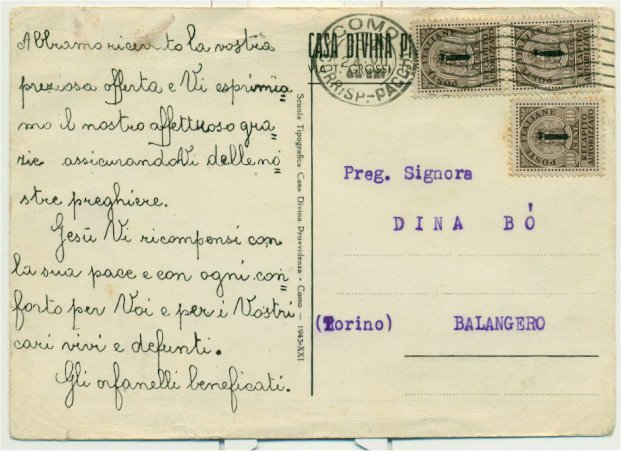 Abbramo ricevuto la vostra
preziosa offerta e Vi esprimia„
mo il nostro affettuoso gra„
zie assicurandoVi delle no„
stre preghiere.
Gesù Vi ricompensi con
la sua pace e con ogni con„
forto per Voi e per i Vostri
cari vivi e defunti.
Gli orfanelli beneficati.
Scuola Tipografica Casa Divina Provvidenza - Como - 1943-XXI
CASA DIVINA P
COMO
CORRISP.-PACCHI
POSTE ITALIANE
RECAPITO AUTORIZZATO
POSTE ITALIANE
RECAPITO AUTORIZZATO
POSTE ITALIANE
RECAPITO
AUTORIZZATO
Preg. Signora
DINA BÒ
(Torino) BALANGERO